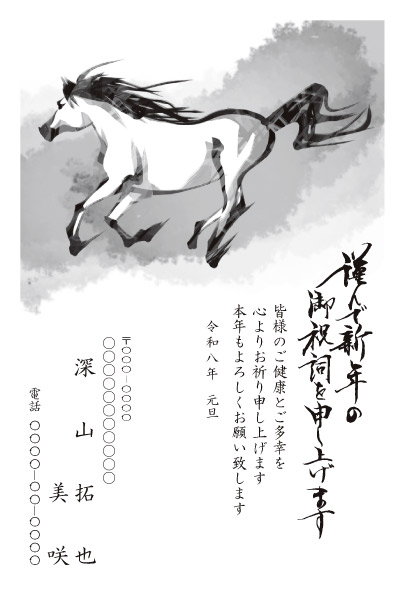 謹んで新年の
御祝詞を申し上げます
皆様のご健康とご多幸を
心よりお祈り申し上げます
本年もよろしくお願い致します
令和八年　元旦
〒〇〇〇―〇〇〇〇
〇〇〇〇〇〇〇〇〇〇〇
深山拓也
美咲
電話　〇〇〇〇―〇〇―〇〇〇〇